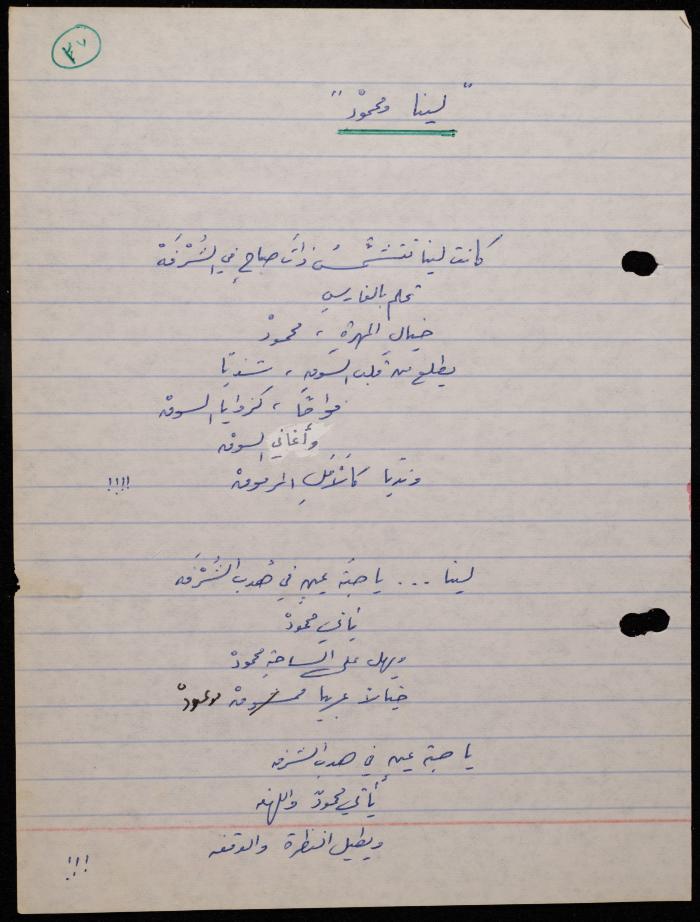 ٣٧
"لينا ومحمودْ"
كانت لينا تتشمَّسُ ذاتَ صباحٍ في الشُّرْفَهْ
تحلم بالفارسِ
خيال المهرةِ ، محمودْ
يطلع من قلب السوقِ ، شذيّا
فواحًا ، كزوايا السوقْ
وأغاني السوقْ
ونديا كالأملِ المرموقْ !!!!
لينا ... يا حبّة عينٍ في هُدب الشُّرْفَه
يأتي محمودْ
ويهل على الساحةِ محمودْ
خيالاً عربيا موعودْ
يا حبّة عينٍ في هدب الشرفه
يأتي محمودْ واللهفه
ويطيل النظرة والوقفه !!!